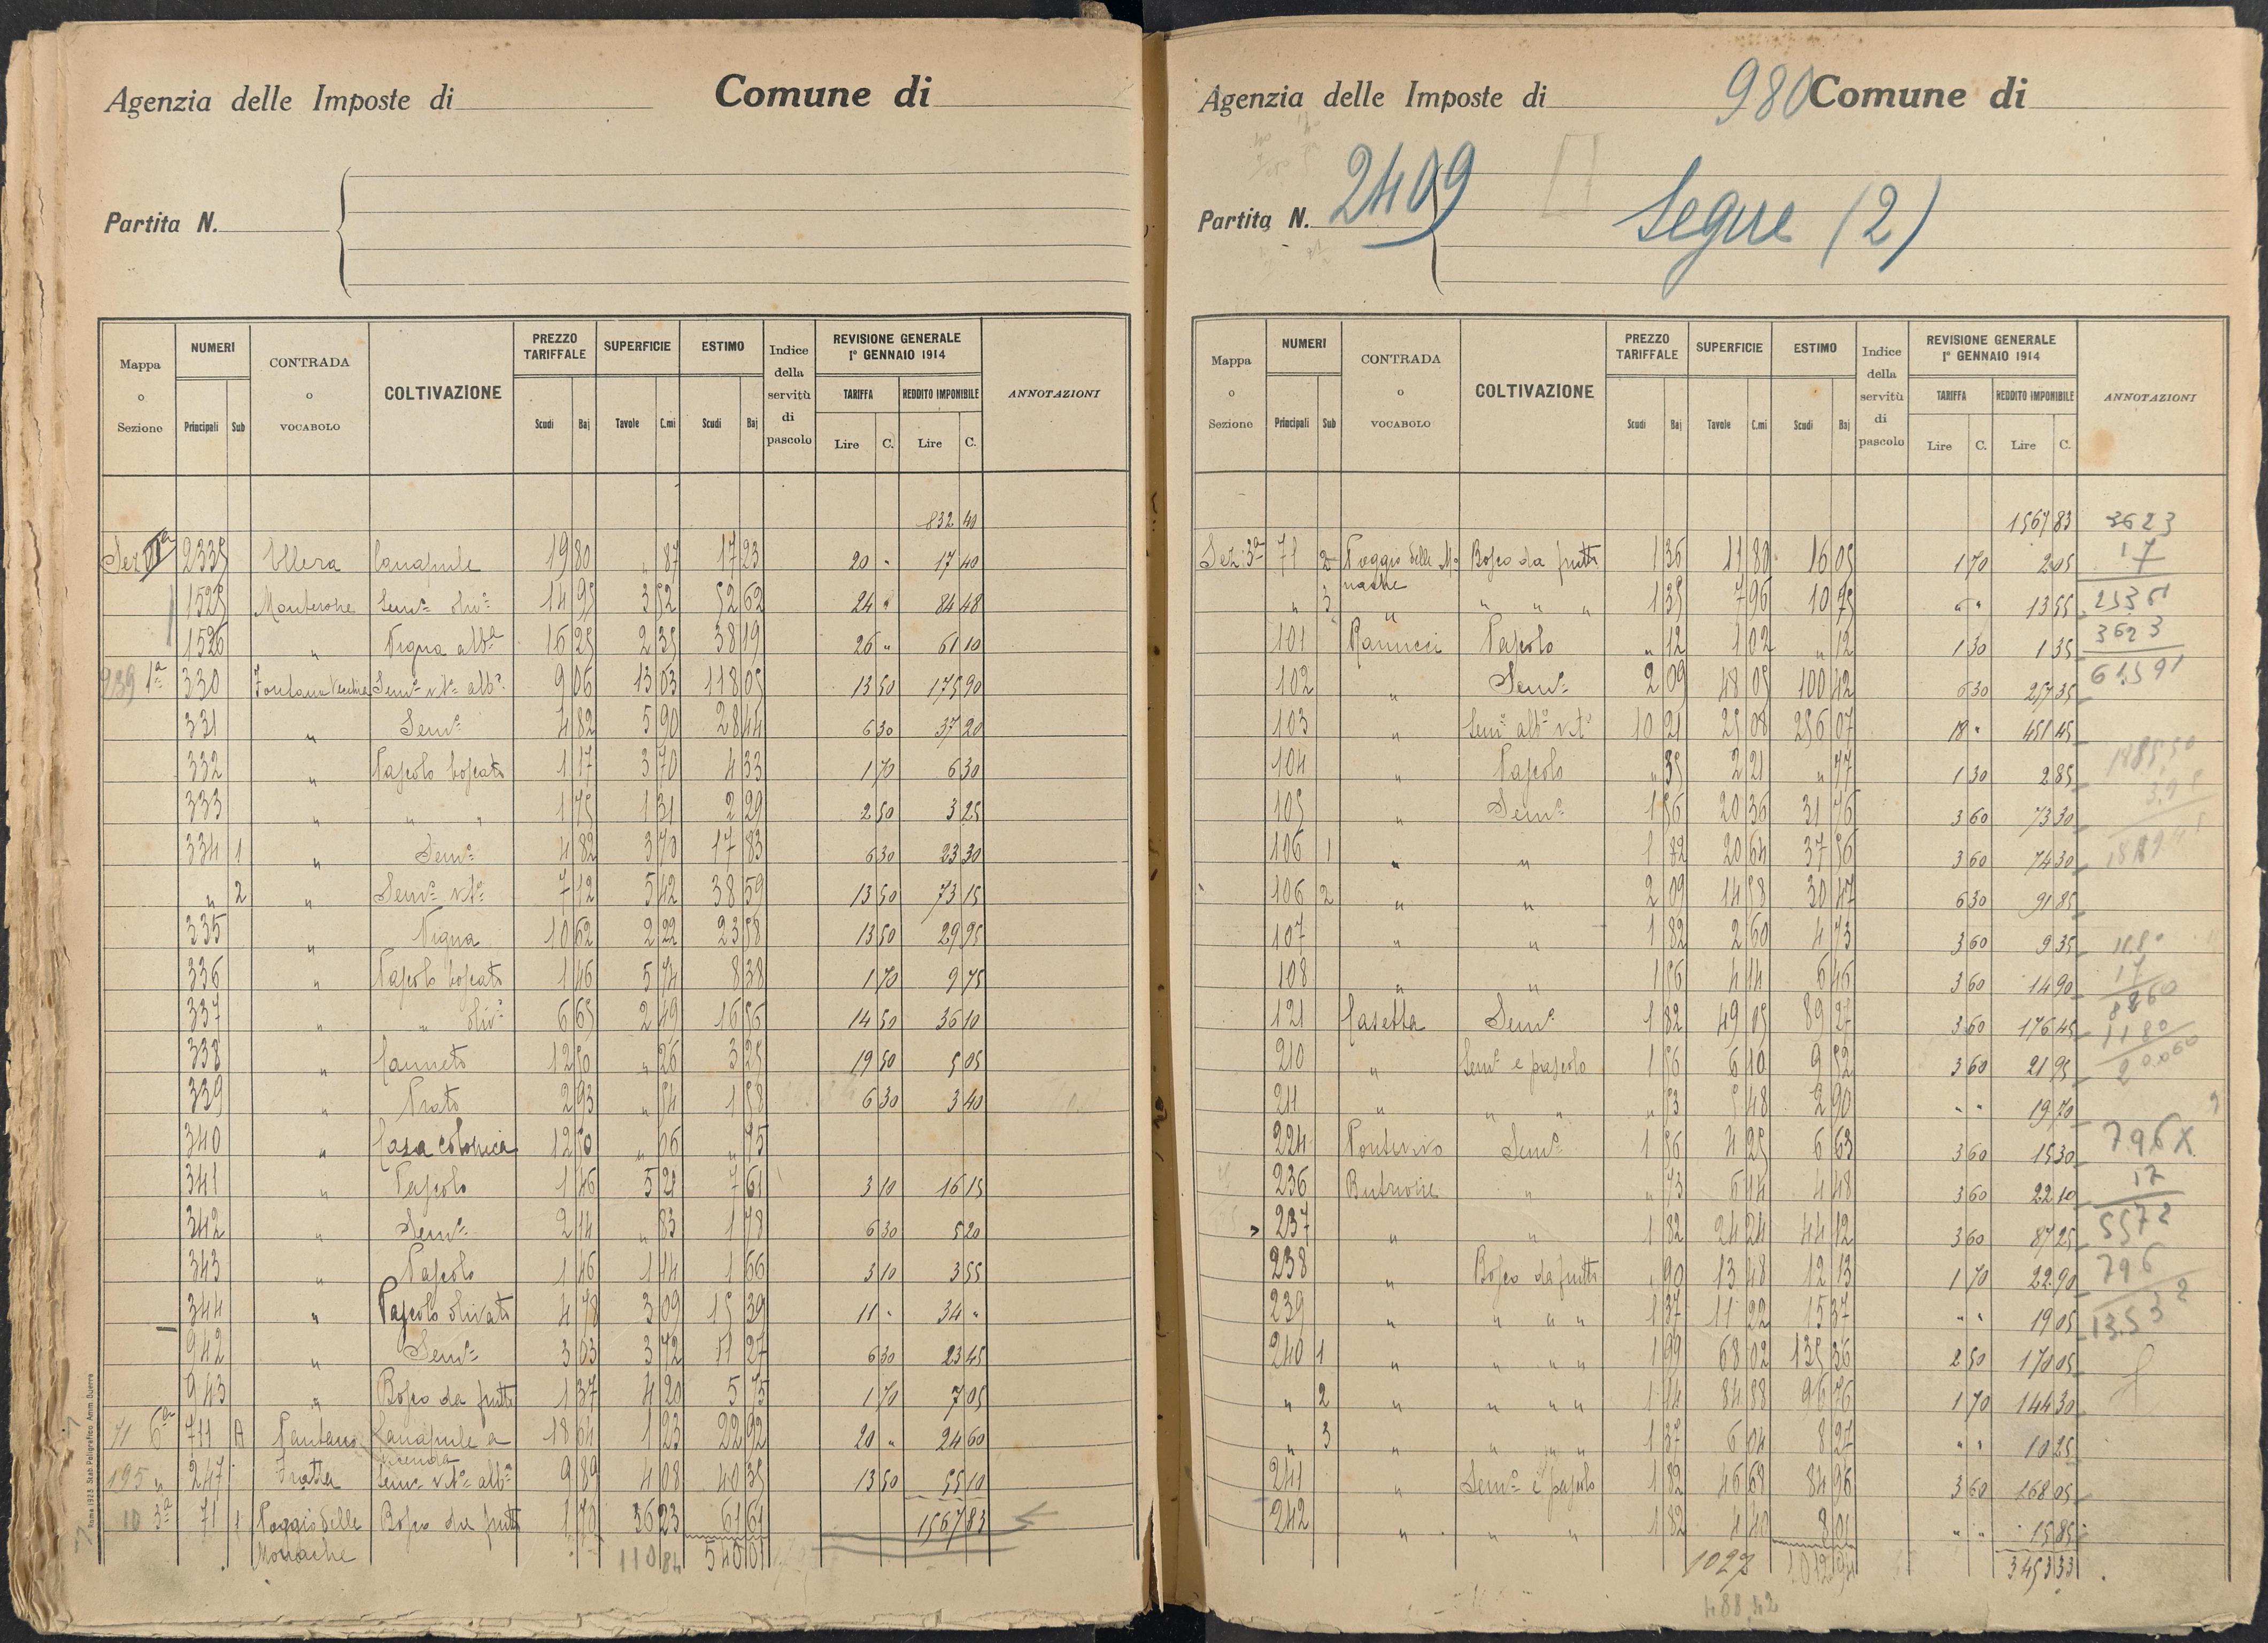 Agenzia delle Imposte di
Comune di
Partita N.
Mappa o Sezione NUMERI Principali Sub CONTRADA o VOCABOLO COLTIVAZIONE PREZZO TARIFFALE Scudi Baj SUPERFICIE Tavole C.mi ESTIMO Scudi Baj Indice della servitù di pascolo REVISIONE GENERALE 1º GENNAIO 1914 TARIFFA Lire C. REDDITO IMPONIBILE Lire C. ANNOTAZIONI
832 40
2335 Ellera Canapule 19 80 " 87 17 23 20 " 17 40
1525 Monterone Semº olivº 14 95 3 52 52 62 24 " 84 48
1526 " Vigna albª 16 25 2 35 38 19 26 " 61 10
939 1ª 330 Fontana Vecchia Semº vtº albº 9 06 13 03 118 05 13 50 175 90
331 " Semº 4 82 5 90 28 44 6 30 37 20
332 " Pascolo boscato 1 17 3 70 4 33 1 70 6 30
333 " " " 1 75 1 31 2 29 2 50 3 25
334 1 " Semº 4 82 3 70 17 83 6 30 23 30
" 2 " Semº vtº 7 12 5 42 38 59 13 50 73 15
335 " Vigna 10 62 2 22 23 58 13 50 29 95
336 " Pascolo boscato 1 46 5 74 8 38 1 70 9 75
337 " " olivº 6 65 2 49 16 56 14 50 36 10
338 " Canneto 12 50 " 26 3 25 19 50 5 05
339 " Prato 2 93 " 54 1 58 6 30 3 40
340 " Casa colonica 12 50 " 06 " 75
341 " Pascolo 1 46 5 21 7 61 3 10 16 15
342 " Semº 2 14 " 83 1 78 6 30 5 20
343 " Pascolo 1 46 1 14 1 66 3 10 3 55
344 " Pascolo olivato 4 78 3 09 15 39 11 " 34 "
942 " Semº 3 03 3 72 11 27 6 30 23 45
943 " Bosco da frutto 1 37 4 20 5 75 1 70 7 05
71 6ª 711 A Pantano Canapule a vicenda 18 64 1 23 22 92 20 " 24 60
195 " 247 Fratta Semº vtº albº 9 89 4 08 40 35 13 50 55 10
10 3ª 71 1 Poggio delle Monache Bosco da frutto 1 70 36 23 61 61 1567 83
110 84 540 01
Roma 1923. Stab. Poligrafico Amm. Guerra
Agenzia delle Imposte di
980
Comune di
Partita N. 2409
Segue (2)
Mappa o Sezione NUMERI Principali Sub CONTRADA o VOCABOLO COLTIVAZIONE PREZZO TARIFFALE Scudi Baj SUPERFICIE Tavole C.mi ESTIMO Scudi Baj Indice della servitù di pascolo REVISIONE GENERALE 1º GENNAIO 1914 TARIFFA Lire C. REDDITO IMPONIBILE Lire C. ANNOTAZIONI
1567 83 3623
Sez: 3ª 71 2 Poggio delle Monache Bosco da frutto 1 36 11 80 16 05 1 70 2 05 17
" 3 " " " " 1 35 7 96 10 75 " " 13 55 25361
101 Ranucci Pascolo " 12 1 02 " 12 1 30 1 35 3623
102 " Semº 2 09 48 05 100 42 6 30 257 35 61591
103 " Semº albº vtº 10 21 25 08 256 07 18 " 451 45
104 " Pascolo " 35 2 21 " 77 1 30 2 85
105 " Semº 1 56 20 36 31 76 3 60 73 30
106 1 " " 1 82 20 64 37 56 3 60 74 30
106 2 " " 2 09 14 58 30 47 6 30 91 85
107 " " 1 82 2 60 4 73 3 60 9 35 11.80
108 " " 1 56 4 14 6 46 3 60 14 90 17
121 Casetta Semº 1 82 49 05 89 27 3 60 176 45 1180
210 " Semº e pascolo 1 56 6 10 9 52 3 60 21 95
211 " " " " 53 5 48 2 90 " " 19 70
224 Pontevivo Semº 1 56 4 25 6 63 3 60 15 30 796 X
236 Butrione " " 73 6 14 4 48 3 60 22 10 17
237 " " 1 82 24 24 44 12 3 60 87 25 5572
238 " Bosco da frutto " 90 13 48 12 13 1 70 22 90 796
239 " " " " 1 37 11 22 15 37 " " 19 05 13.532
240 1 " " " " 1 99 68 02 135 36 2 50 170 05
" 2 " " " " 1 14 84 88 96 76 1 70 144 30
" 3 " " " " 1 37 6 04 8 27 " " 10 25
241 " Semº e pascolo 1 82 46 68 84 96 3 60 168 05
242 " " " 1 82 4 40 8 01 " " 15 85
1012 94 3453 33
488.42